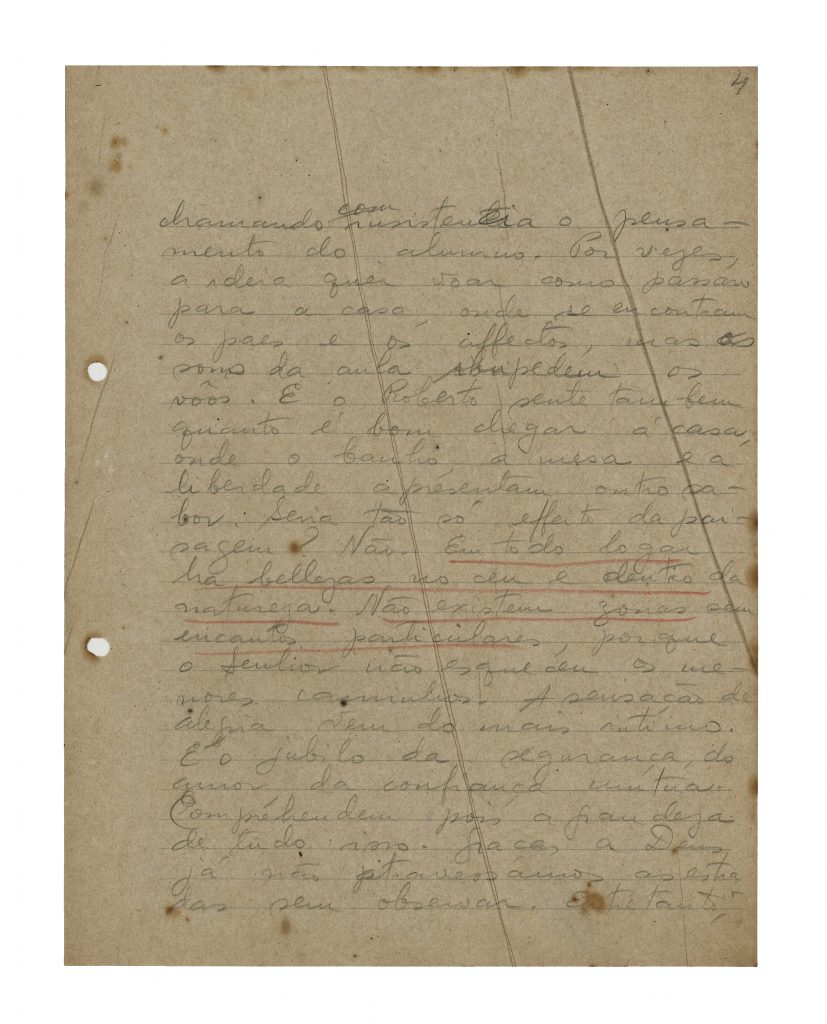 4
chamando com insistencia o pensa-
mento do alumno. Por vezes,
a idéia quer voar como passaro
para a casa, onde se encontram
os paes e os affectos, mas os
sons da aula impedem os
vôos. E o Roberto sente tambem
quanto é bom chegar á casa,
onde o banho a mesa e a
liberdade apresentam outro sa-
bor. Seria tão só effeito da pai-
sagem? Não. Em todo logar
ha bellezas no ceu e dentro da
natureza. Não existem zonas sem
encantos particulares, porque
o Senhor não esqueceu os me-
nores caminhos. A sensação de
alegria vem do mais intimo.
E' o jubilo da segurança, do
amor da confiança mutua.
Comprehendem pois a grandeza
de tudo isso. Graças a Deus
já não atravessámos as estra
das sem observar. Entretanto,